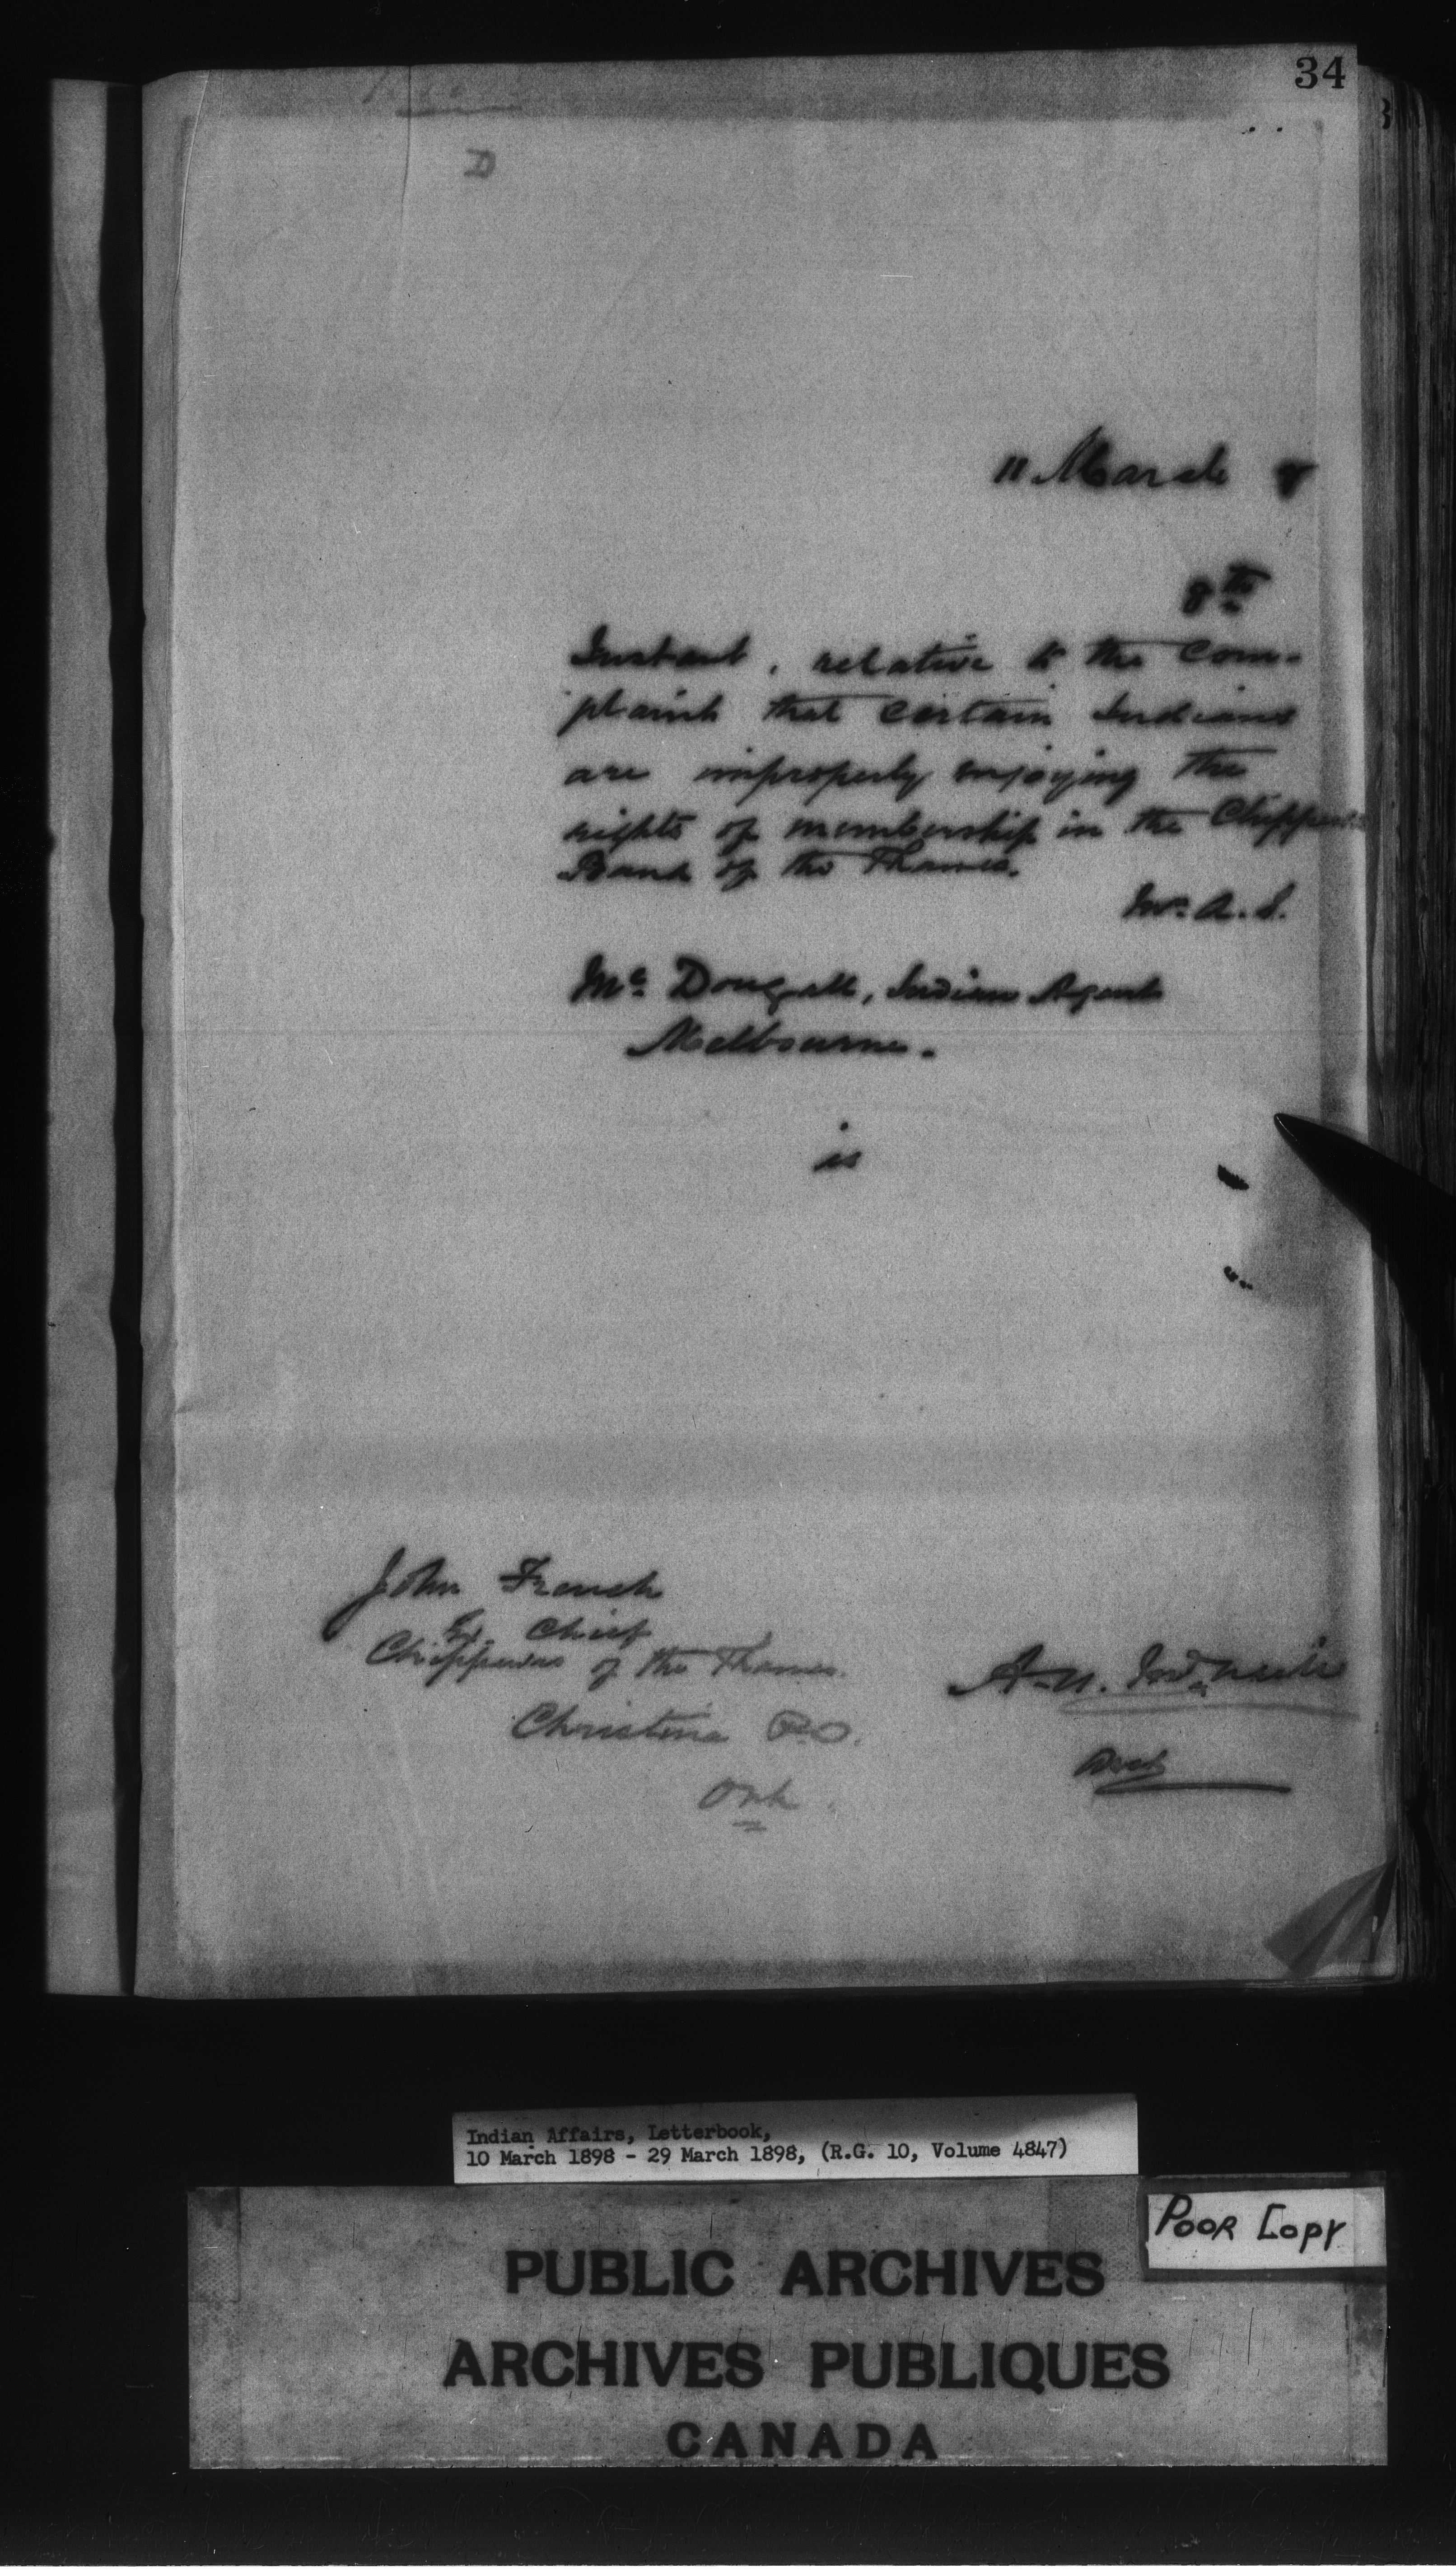 34
D
11 March 8
8th
Instant, relative to the com-
plaint that certain Indians
are improperly enjoying the
rights of membership in the Chippewa
Band of the Thames.
Mr. A. S.
Mc Dougall, Indian Agent
Melbourne.
is
John French
Ex. Chief
Chippewas of the Thames.
Christina P.O.
Ont.
A. N. McNeill
Indian Affairs, Letterbook,
10 March 1898 - 29 March 1898, (R.G. 10, Volume 4847)
POOR COPY
PUBLIC ARCHIVES
ARCHIVES PUBLIQUES
CANADA